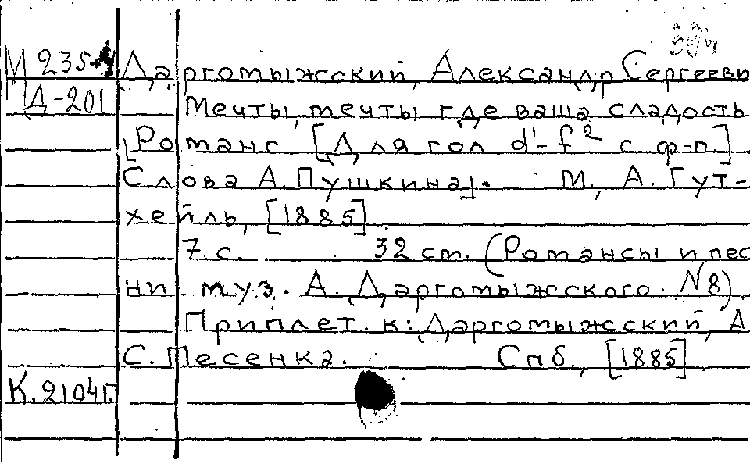 М 235-4 Даргомыжский, Александр Сергееви
Д-201 Мечты, мечты где ваша сладость
[Романс [Для гол d'-f² с ф-п.]
Слова А. Пушкина]. М., А. Гут-
хейль, [1885].
7 с. 32 см. (Романсы и пес
ни муз. А. Даргомыжского. №8)
Приплет. к: Даргомыжский, А
С. Песенка. Спб., [1885]
К. 2104г.